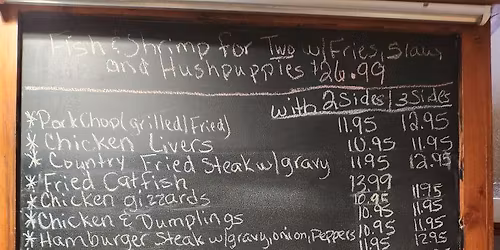 Fish & Shrimp for Two w/Fries, Slaw,
and Hushpuppies $26.99
with 2 Sides | 3 Sides
*Pork Chop (grilled/Fried) 11.95 12.95
*Chicken Livers 10.95 11.95
*Country Fried Steak w/gravy 11.95 12.95
*Fried Catfish 13.99
*Chicken gizzards 10.95 11.95
*Chicken & Dumplings 10.95 11.95
*Hamburger Steak w/gravy, onion, Peppers 10.95 11.95
11.95 12.95